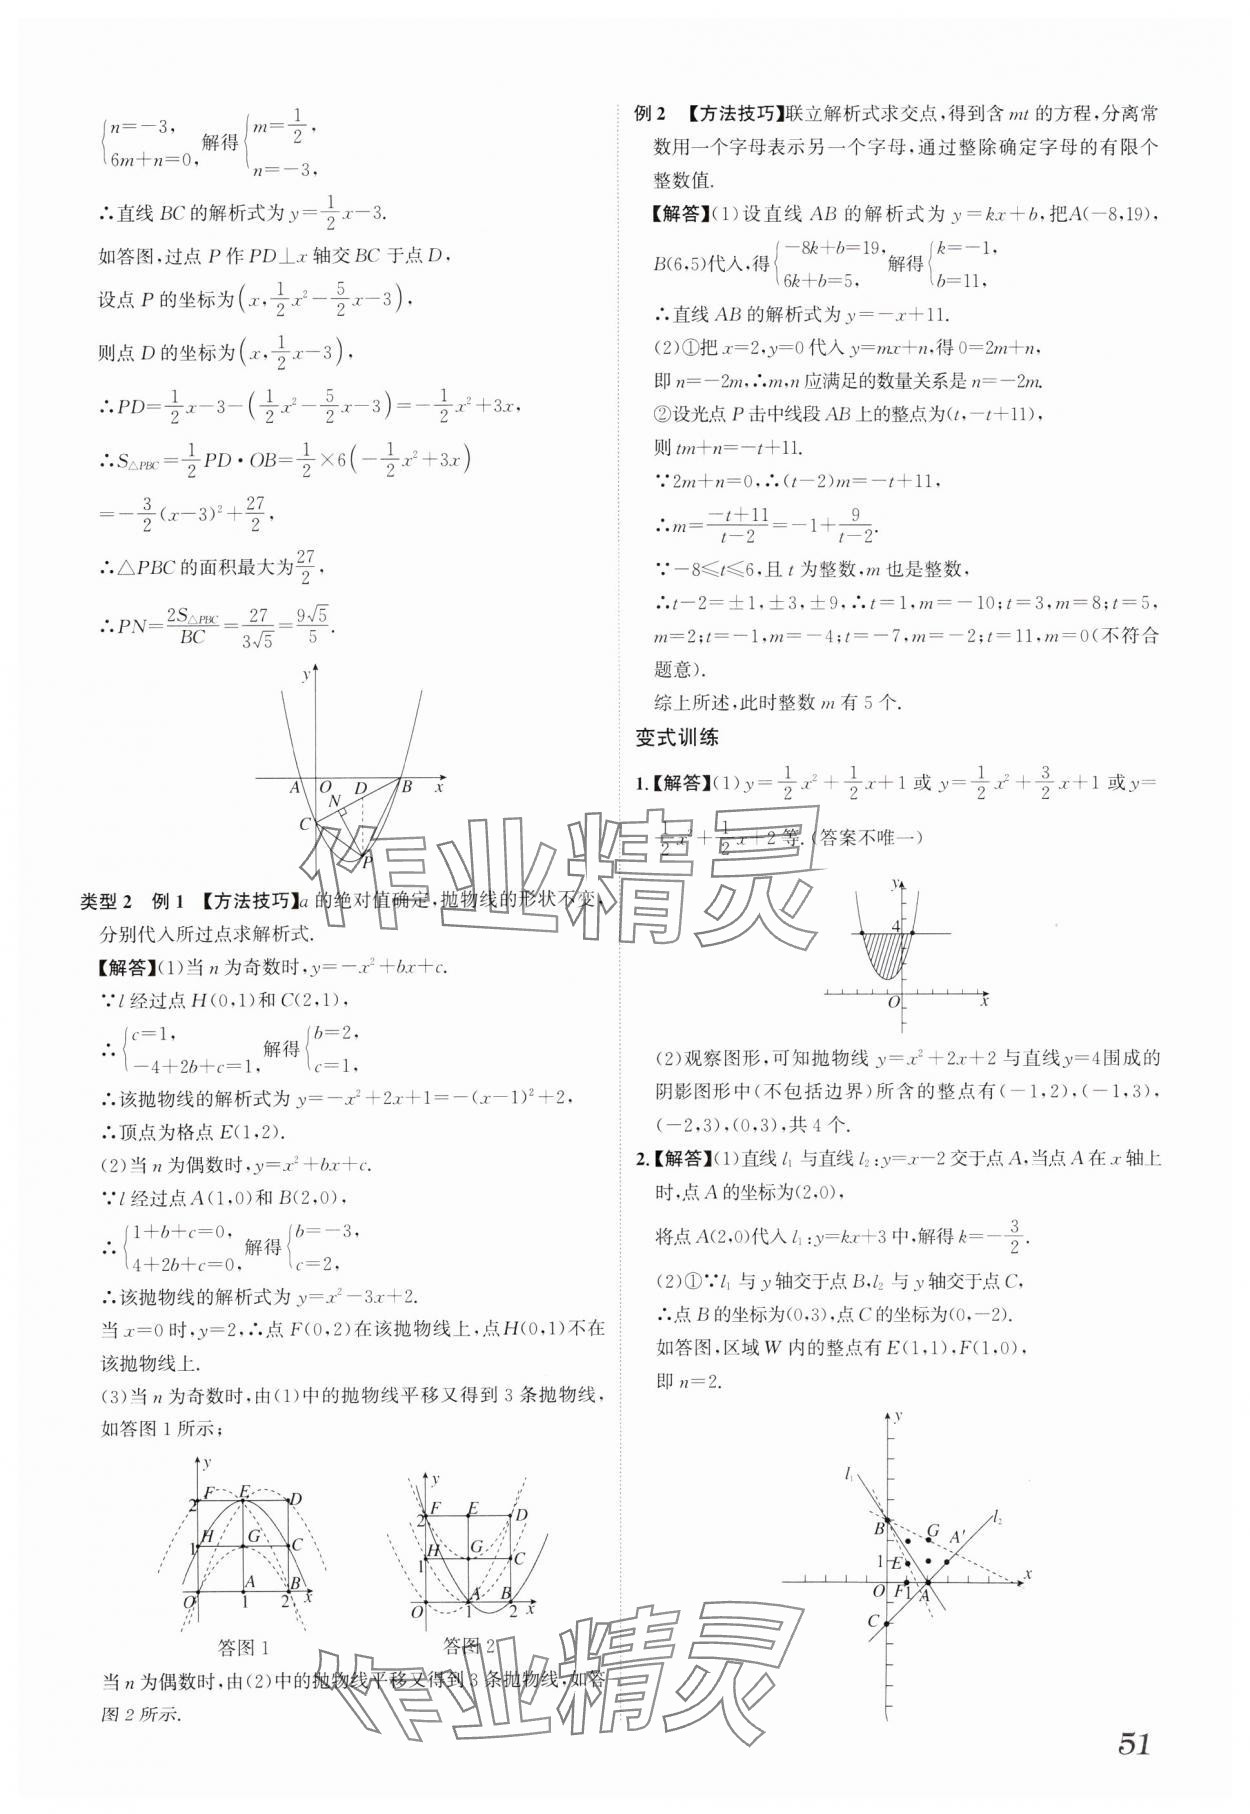 {n=-3, 6m+n=0, 解得{m=1/2, n=-3,
∴直线 BC 的解析式为 y=1/2x-3.
如答图,过点 P 作 PD⊥x 轴交 BC 于点 D,
设点 P 的坐标为(x,1/2x²-5/2x-3),
则点 D 的坐标为(x,1/2x-3),
∴PD=1/2x-3-(1/2x²-5/2x-3)=-1/2x²+3x,
∴S△PBC=1/2PD·OB=1/2×6(-1/2x²+3x)
=-3/2(x-3)²+27/2,
∴△PBC 的面积最大为27/2,
∴PN=2S△PBC/BC=27/3√5=9√5/5.
y
A O D B x
N
C
P
类型 2 例 1 【方法技巧】a 的绝对值确定,抛物线的形状不变,
分别代入所过点求解析式.
【解答】(1)当 n 为奇数时,y=-x²+bx+c.
∵l 经过点 H(0,1)和 C(2,1),
∴{c=1, -4+2b+c=1, 解得{b=2, c=1,
∴该抛物线的解析式为 y=-x²+2x+1=-(x-1)²+2,
∴顶点为格点 E(1,2).
(2)当 n 为偶数时,y=x²+bx+c.
∵l 经过点 A(1,0)和 B(2,0),
∴{1+b+c=0, 4+2b+c=0, 解得{b=-3, c=2,
∴该抛物线的解析式为 y=x²-3x+2.
当 x=0 时,y=2,∴点 F(0,2)在该抛物线上,点H(0,1)不在
该抛物线上.
(3)当 n 为奇数时,由(1)中的抛物线平移又得到 3 条抛物线,
如答图 1 所示;
y
2 F E D
1 H G C
O A B
1 2 x
答图 1
y
2 F E D
1 H G C
O A B
1 2 x
答图 2
当 n 为偶数时,由(2)中的抛物线平移又得到 3 条抛物线,如答
图 2 所示.
例 2 【方法技巧】联立解析式求交点,得到含 mt 的方程,分离常
数用一个字母表示另一个字母,通过整除确定字母的有限个
整数值.
【解答】(1)设直线 AB 的解析式为 y=kx+b,把A(-8,19),
B(6,5)代入,得{-8k+b=19, 6k+b=5, 解得{k=-1, b=11,
∴直线 AB 的解析式为 y=-x+11.
(2)①把 x=2,y=0 代入 y=mx+n,得 0=2m+n,
即 n=-2m,∴m,n 应满足的数量关系是 n=-2m.
②设光点 P 击中线段 AB 上的整点为(t,-t+11),
则 tm+n=-t+11.
∵2m+n=0,∴(t-2)m=-t+11,
∴m=-t+11/t-2=-1+9/t-2.
∵-8≤t≤6,且 t 为整数,m 也是整数,
∴t-2=±1,±3,±9,∴t=1,m=-10;t=3,m=8;t=5,
m=2;t=-1,m=-4;t=-7,m=-2;t=11,m=0(不符合
题意).
综上所述,此时整数 m 有 5 个.
变式训练
1.【解答】(1)y=1/2x²+1/2x+1 或 y=1/2x²+3/2x+1 或 y=
1/2x²+1/2x+2 等.(答案不唯一)
y
4
O x
(2)观察图形,可知抛物线 y=x²+2x+2 与直线y=4围成的
阴影图形中(不包括边界)所含的整点有(-1,2),(-1,3),
(-2,3),(0,3),共 4 个.
2.【解答】(1)直线 l₁ 与直线 l₂:y=x-2 交于点 A,当点 A 在 x 轴上
时,点 A 的坐标为(2,0),
将点 A(2,0)代入 l₁:y=kx+3 中,解得 k=-3/2.
(2)①∵l₁ 与 y 轴交于点 B,l₂ 与 y 轴交于点 C,
∴点 B 的坐标为(0,3),点 C 的坐标为(0,-2).
如答图,区域 W 内的整点有 E(1,1),F(1,0),
即 n=2.
y
l₁
l₂
B G A'
1 E
O F1 A x
C
作业精灵
作业精灵
51